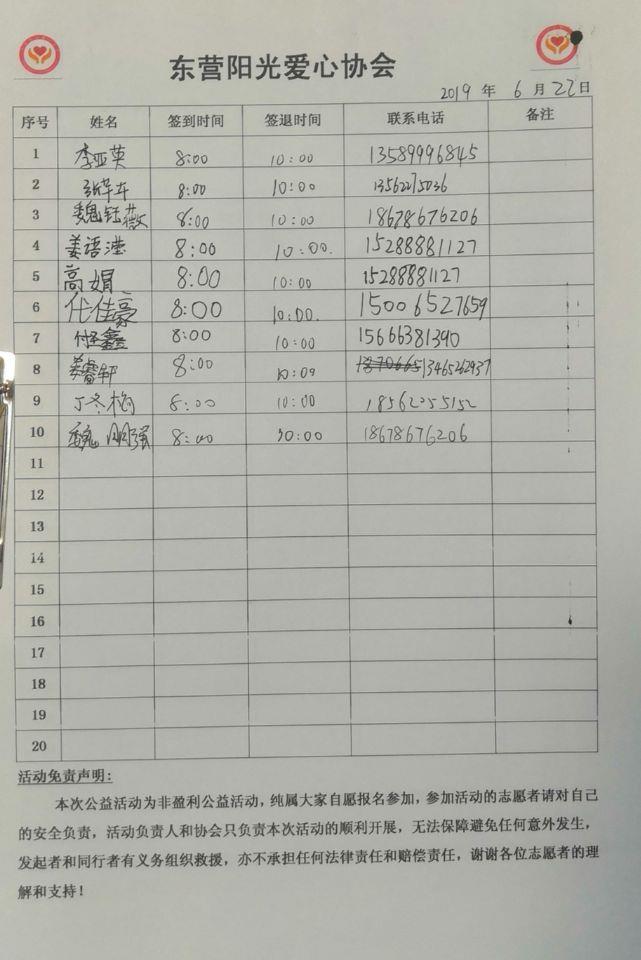 东营阳光爱心协会
2019 年 6 月 22 日
序号 姓名 签到时间 签退时间 联系电话 备注
1 李亚英 8:00 10:00 13589996845
2 8:00 10:00 13562275036
3 魏钰薇 8:00 10:00 18678676206
4 姜语滢 8:00 10:00. 15288881127
5 高娟 8:00 10:00 15288881127
6 代佳豪 8:00 10:00. 15006527659
7 8:00 10:00 15666381390
8 姜睿轩 8:00 10:09 13465262937
9 丁冬梅 8:00 10:00 18562055152
10 魏明强 8:00 10:00 18678676206
11
12
13
14
15
16
17
18
19
20
活动免责声明:
本次公益活动为非盈利公益活动，纯属大家自愿报名参加，参加活动的志愿者请对自己
的安全负责，活动负责人和协会只负责本次活动的顺利开展，无法保障避免任何意外发生，
发起者和同行者有义务组织救援，亦不承担任何法律责任和赔偿责任，谢谢各位志愿者的理
解和支持！